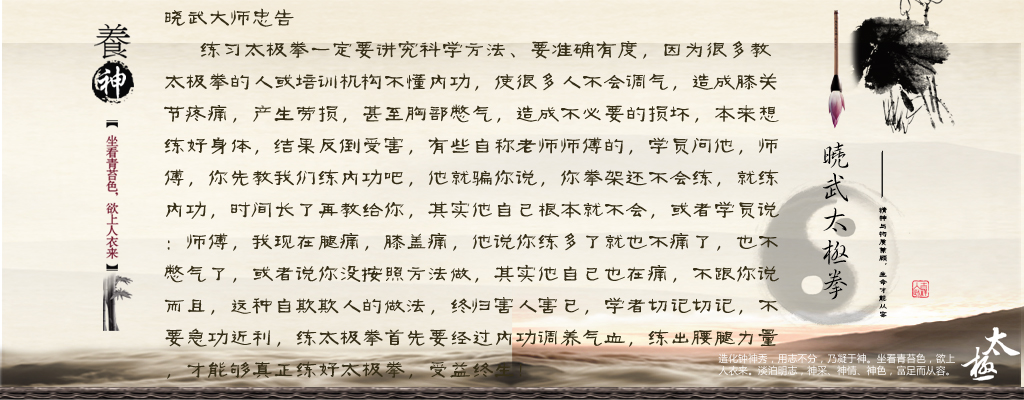 晓武大师忠告
练习太极拳一定要讲究科学方法、要准确有度，因为很多教
太极拳的人或培训机构不懂内功，使很多人不会调气，造成膝关
节疼痛，产生劳损，甚至胸部憋气，造成不必要的损坏，本来想
练好身体，结果反倒受害，有些自称老师师傅的，学员问他，师
傅，你先教我们练内功吧，他就骗你说，你拳架还不会练，就练
内功，时间长了再教给你，其实他自己根本就不会，或者学员说
：师傅，我现在腿痛，膝盖痛，他说你练多了就也不痛了，也不
憋气了，或者说你没按照方法做，其实他自己也在痛，不跟你说
而且，这种自欺欺人的做法，终归害人害己，学者切记切记，不
要急功近利，练太极拳首先要经过内功调养气血，练出腰腿力量
，才能够真正练好太极拳，受益终生！
養
神
【坐看青苔色，欲上人衣来】
晓武太极拳
精神与物质兼顾，生命才能从容
造化钟神秀，用志不分，乃凝于神。坐看青苔色，欲上
人衣来。谈泊明志，神采、神情、神色，富足而从容。
太極